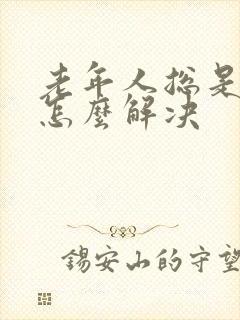 老年人總是
怎麼解决
錫安山的守望